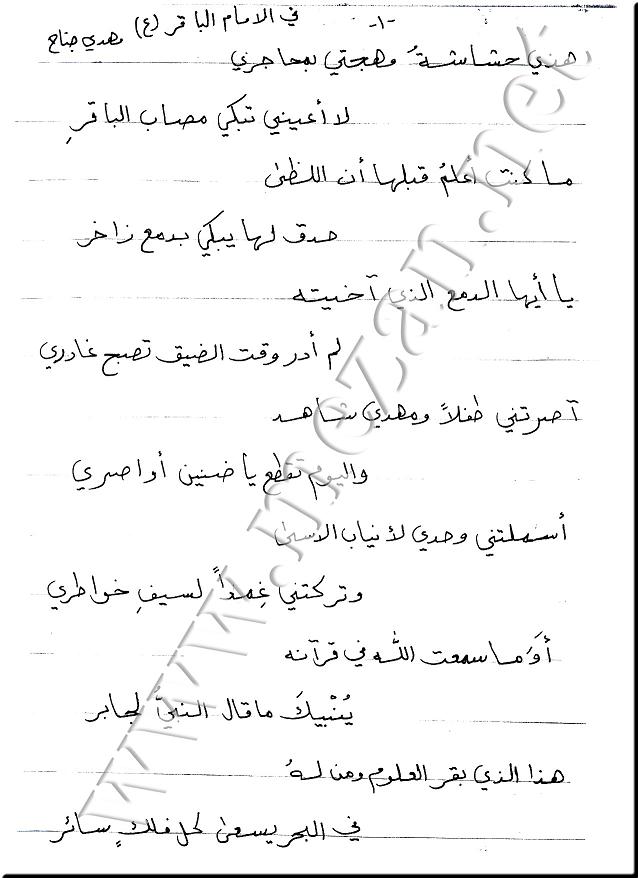 في الامام الباقر (ع) -١-
مهدي جناح
هذي حشاشةُ مهجتي بمحاجري
لا أعيني تبكي مصاب الباقرِ
ما كنت أعلمُ قبلها أن اللظى
حدق لها يبكي بدمع زاخر
يا أيها الدمع الذي آخيته
لم أدر وقت الضيق تصبح غادري
آصرتني طفلاً ومهدي شاهد
واليوم تقطع يا ضنين أواصري
أسلمتني وحدي لأنياب الاسى
وتركتني غِمداً لسيفِ خواطري
أوَ ما سمعت الله في قرآنه
يُنْبيكَ ما قال النبيُّ لجابر
هذا الذي بقر العلوم ومن لهُ
في البحر يسعى كل فلكٍ سائر
www.mezan.net